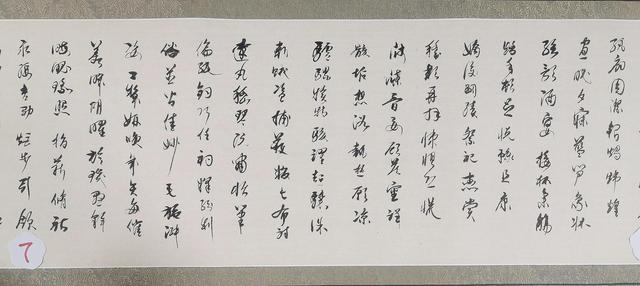 紈扇圓潔銀燭煒煌
晝眠夕寐藍筍象床
弦歌酒宴接杯舉觴
矯手頓足悅豫且康
嫡後嗣續祭祀烝嘗
稽顙再拜悚懼恐惶
箋牒簡要顧答審詳
骸垢想浴執熱願涼
驢騾犢特駭躍超驤誅
斬賊盜捕獲叛亡布射
遼丸嵇琴阮嘯恬筆
倫紙鈞巧任釣釋紛利
俗並皆佳妙毛施淑
姿工顰妍笑年矢每催
羲暉朗曜璇璣懸斡
晦魄環照指薪修祜
永綏吉劭矩步引領
7